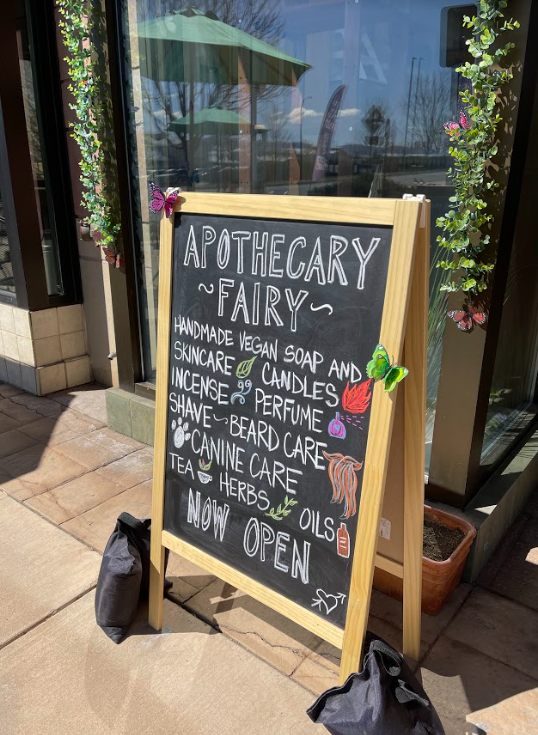 APOTHECARY
~FAIRY~
HANDMADE VEGAN SOAP AND
SKINCARE CANDLES
INCENSE PERFUME
SHAVE ~ BEARD CARE
CANINE CARE
TEA HERBS OILS
NOW OPEN